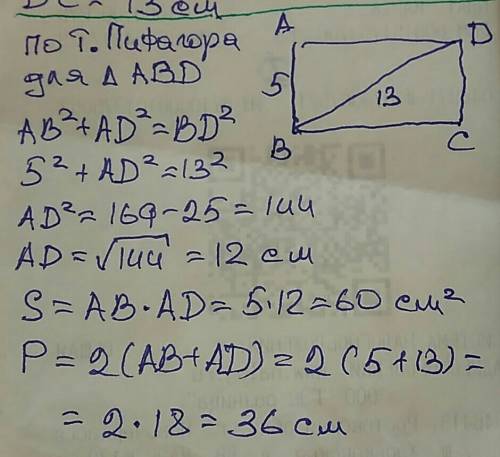 = 13 см
По Т. Пифагора
для Δ ABD
AB²+AD²=BD²
5²+AD²=13²
AD²=169-25=144
AD=√144=12 см
S=AB·AD=5·12=60 см²
P=2(AB+AD)=2(5+13)=
=2·18=36 см
A
D
5
13
B
C